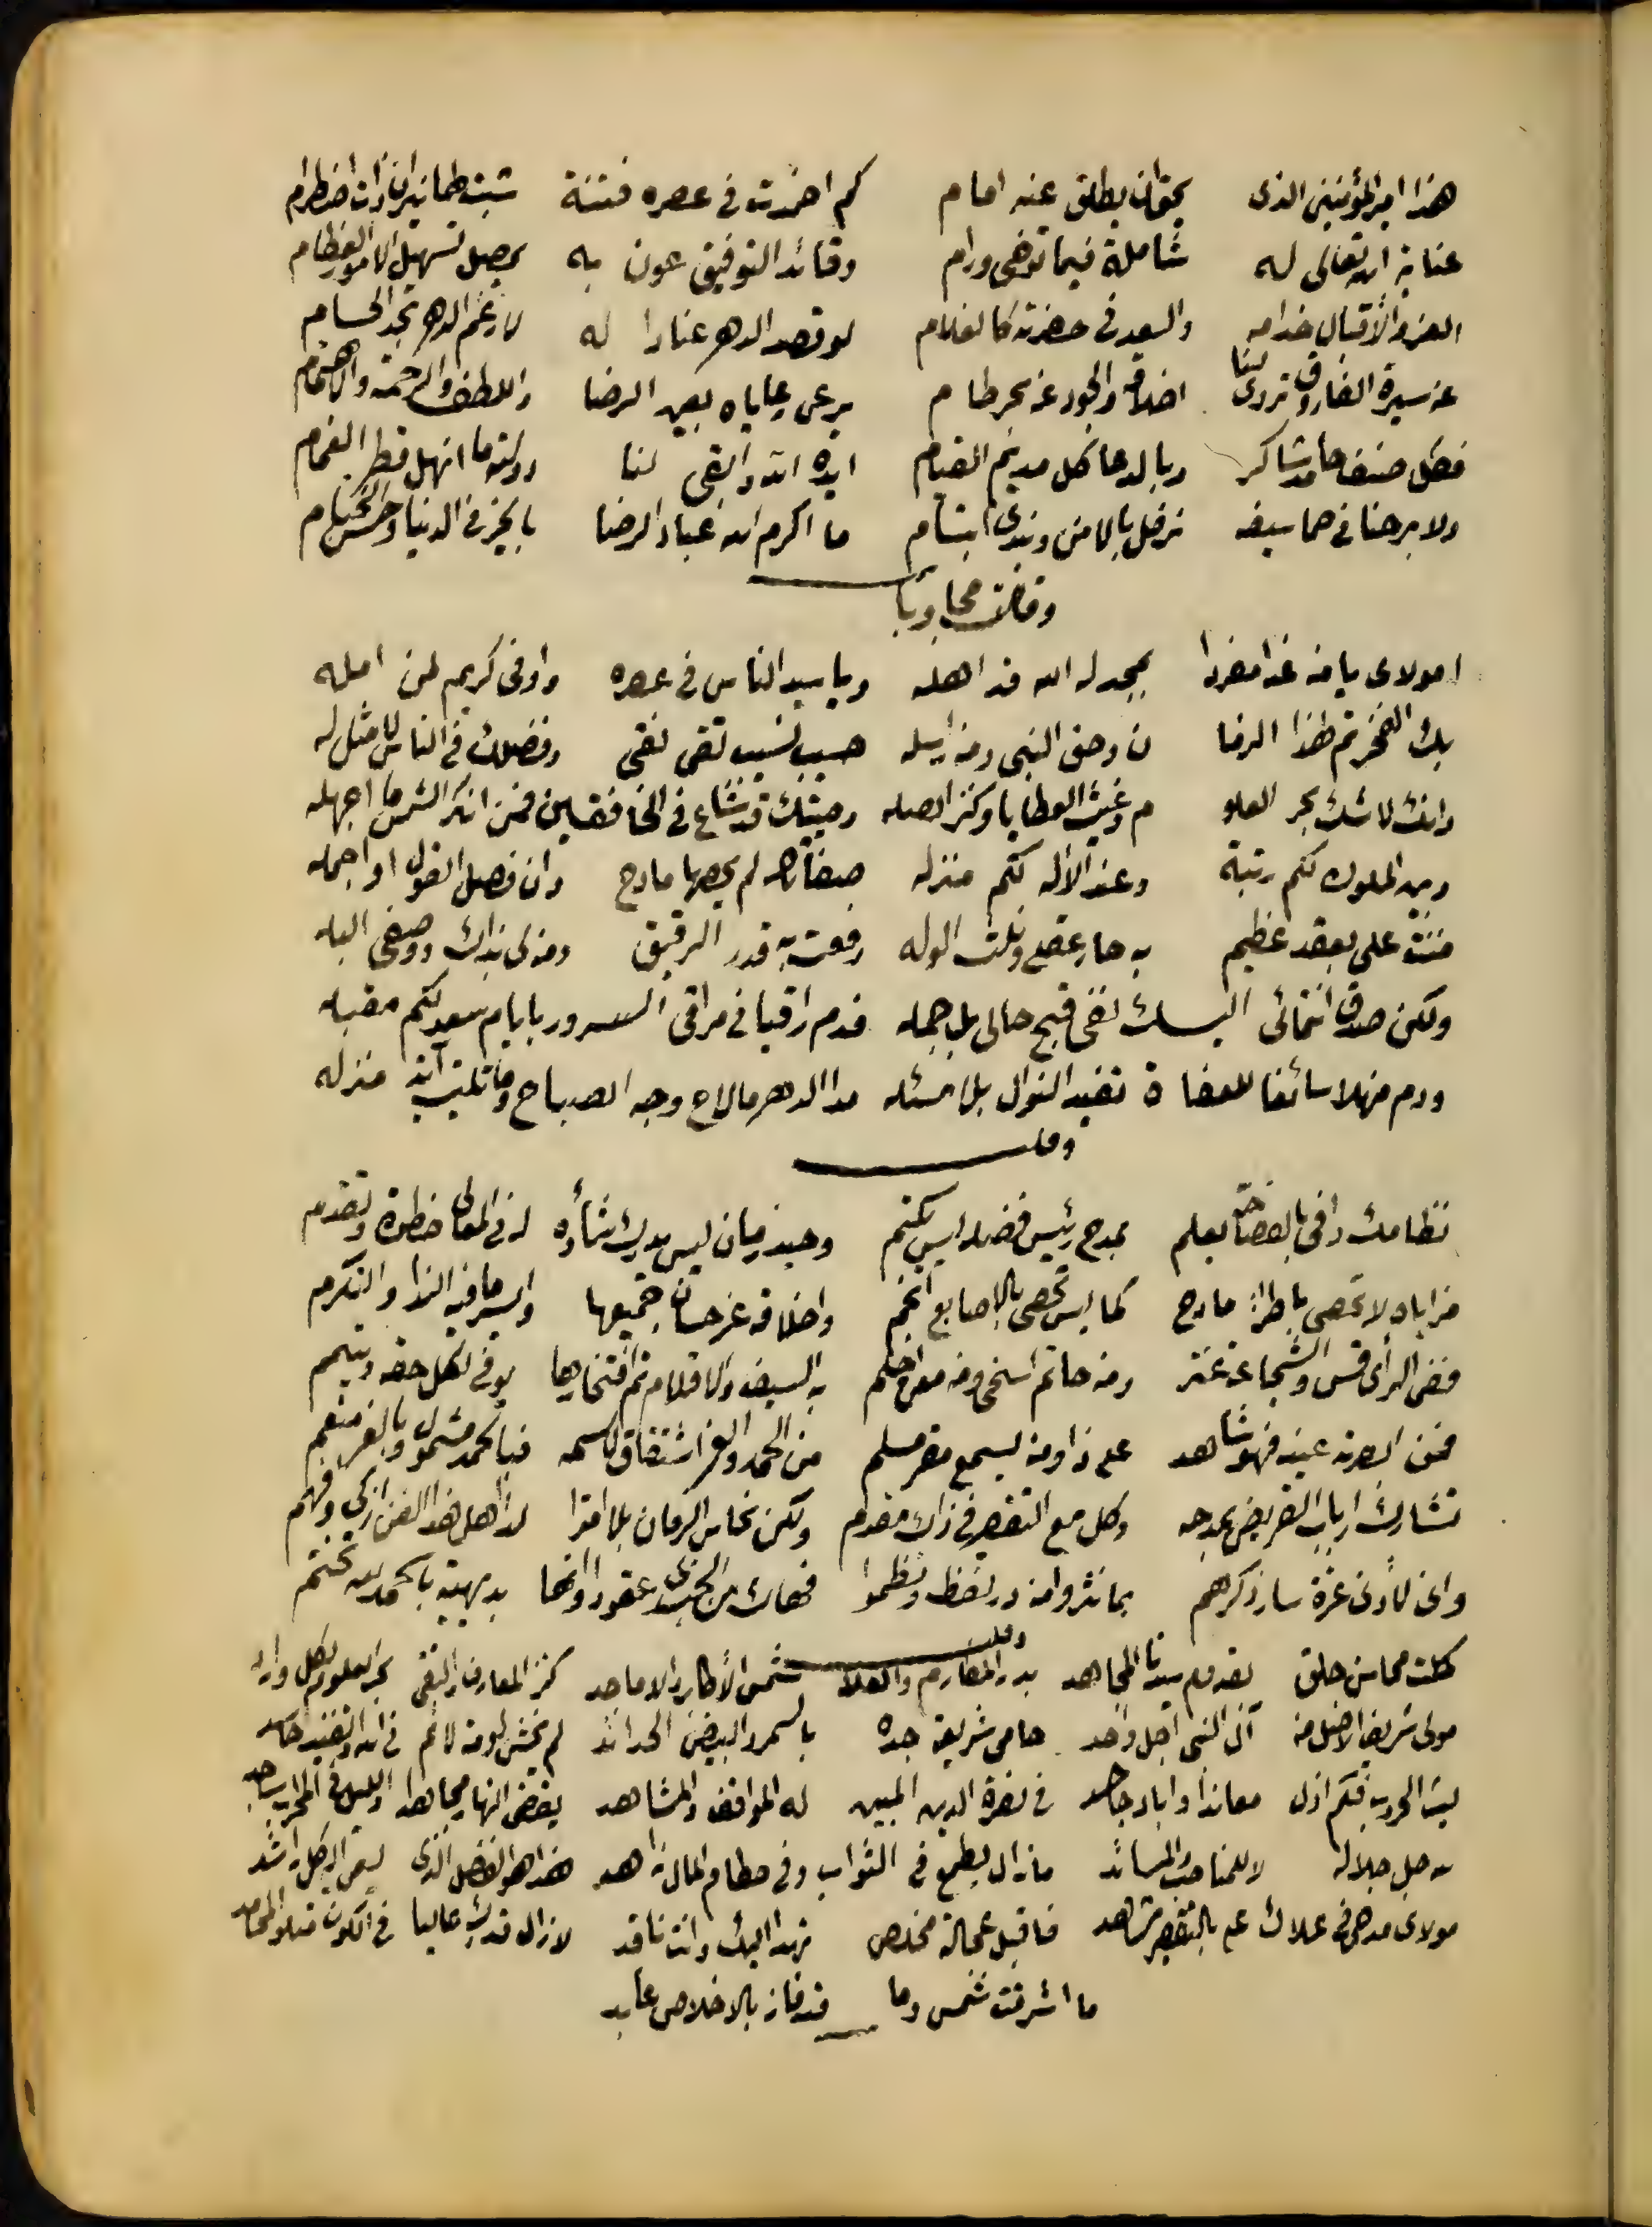 هذا امير المؤمنين الذى بحق ان يطلق عنه امام كم اخمدت فى عصره فتنة شبت لها نيران ذات اضطرام
عناية الله تعالى له شاملة فيما توخى ورام وقائد التوفيق عون به يحصل تسهيل الامور العظام
العز والاقبال خدامه والسعد فى حضرته كالغلام لو قصد الدهر عنادا له لارغم الدهر بحد الحسام
عن سيرة الفاروق تروى لنا اخلاقه والجود عن بحر طام يرعى رعاياه بعين الرضا واللطف والرحمة والاهتمام
فكل صنف حامد شاكر وبالدعا كل مديم القيام ايده الله وابقى لنا دولته ما انهل قطر الغمام
ولا برحنا فى حما سيفه نرفل بالامن ونبدى ابتسام ما اكرم الله عباد الرضا بالخير فى الدنيا وحسن الختام
وقلت مجاوبا
امولاى يا من غدا مفردا بمجد له الله قد اهله ويا سيد الناس فى عصره واوفى كريم لمن امله
بك الفخر تم لهذا الزما ن وحق النبى ومن ارسله حسيب نسيب تقى نقى وفضلك فى الناس لا مثل له
وانك لا شك بحر العلو م وغيث العطايا وكنز الصله وصيتك قد شاع فى الخافقين فمن انكر الشمس ما اجهله
وبين الملوك لكم رتبة وعند الاله لكم منزله صفاتك لم يحصها مادح وان فصل القول او اجمله
مننت على بعقد عظيم به حار عقلى ونلت الوله رفعت به قدر الرقيق ومن لى بذاك ووصفى البله
ولكن صدق انتمائى اليك نفى قبح حالى بل جمله فدم راقيا فى مراقى السرور بايام سعد لكم مقبله
ودم منهلا سائغا للعفاة تفيد النوال بلا مسئله مدا الدهر ما لاح وجه الصباح وما تليت آية منزله
وقلت
نظامك وافى بالفصاحة يعلم بمدح رئيس فضله ليس يكتم وحيد زمان ليس يدرك شأوه له فى المعالى خطوة وتقدم
مزاياه لا تحصى باطراء مادح كما ليس تحصى بالاصابع انجم واخلاقه غر حسان جميعها وايسر ما فيه الندا والتكرم
ففى الرأى قس والشجاعة عنتر ومن حاتم اسخى ومن معن احلم به السيف والاقلام تم افتخارها يوفى لكل حقه ويتمم
فمن ابصرته عينه فهو شاهد على ذا ومن يسمع مقر مسلم من الحمد والعز اشتقاق لاسمه فبالحمد مشمول وبالعز منعم
تشارك ارباب القريض بمدحه وكل مع التقصير فى ذاك مقدم ولكن نحاس الزمان بلا امترا لذا اهل هذا الفن ازكى وافهم
وانى لادنى غزة سار ذكرهم بما نثروا من در لفظ ونظموا فهاك من الجندى عقودا وانها بديهية بالحمد لله تختم
وقلت
كملت محاسن جلق بقدوم سيدنا المجاهد بدر المكارم والعلا شمس الاكابر والاماجد كنز المعارف والتقى بحر العلوم لكل وارد
مولى شريف الاصل من آل النبى اجل واحد حامى شريعة جده بالسمر والبيض الحدائد لم يخش لومة لائم فى الله او تفنيد حاسد
ليث الحروب فكم اذل معاندا واباد جاحد فى نصرة الدين المبين له المواقف والمشاهد يقضى النهار مجاهدا والليل فى المحراب ساجد
لله جل جلاله لا للمناصب والمساند ما زال يطمع فى الثواب وفى حطام المال زاهد هذا هو الفضل الذى يسعى اليه كل راشد
مولاى مدحى فى علاك على بالتقصير شاهد فاقبل عجالة مخلص تهدا اليك وانت ناقد لا زال قدرك عاليا فى الكون تتلوه المحامد
ما اشرقت شمس وما قد فاز بالاخلاص عابد